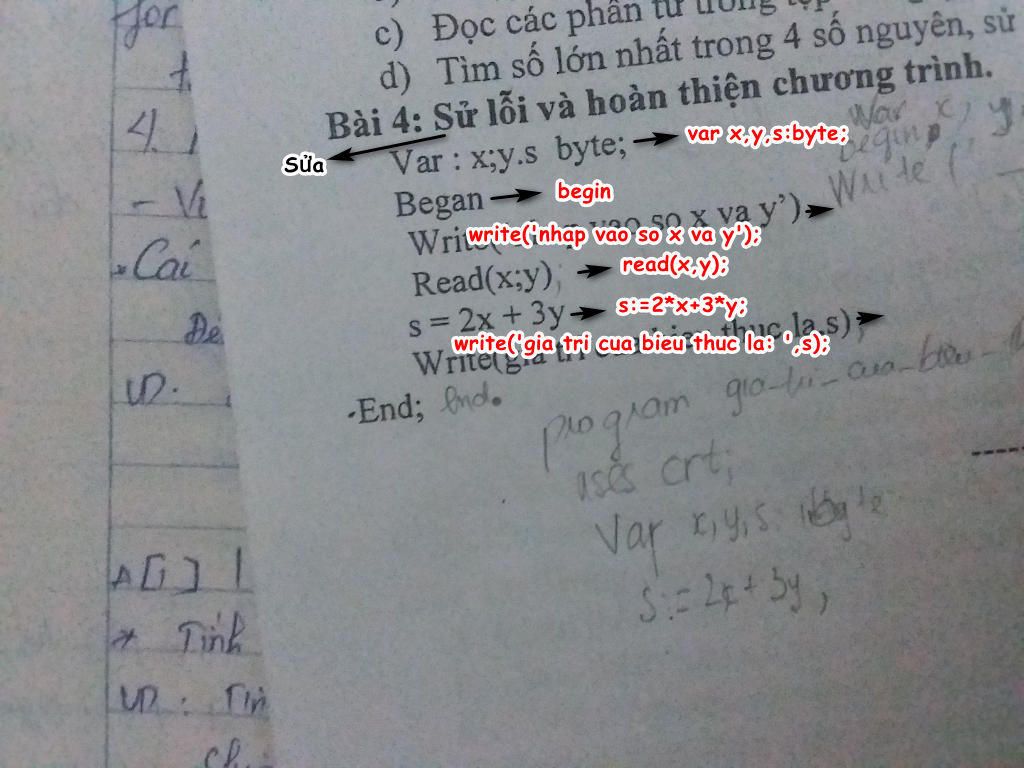 for
c) Đọc các phần tử trong tệp
d) Tìm số lớn nhất trong 4 số nguyên, sử
4.
Bài 4: Sử lỗi và hoàn thiện chương trình.
Sửa
Var x, y,
Var : x;y.s byte; var x,y,s:byte;
begin
Began begin
Write (
Write( vao so x va y')
write('nhap vao so x va y');
Cái
Read(x;y) read(x,y);
s = 2x + 3y s:=2*x+3*y;
Write(gia tri cua bieu thuc la,s)
write('gia tri cua bieu thuc la: ',s);
VD.
-End; End.
program gia_tri_cua_bieu_
uses crt;
Var x,y,s: byte
A[i]
s:= 2x + 3y,
* Tính
VD :